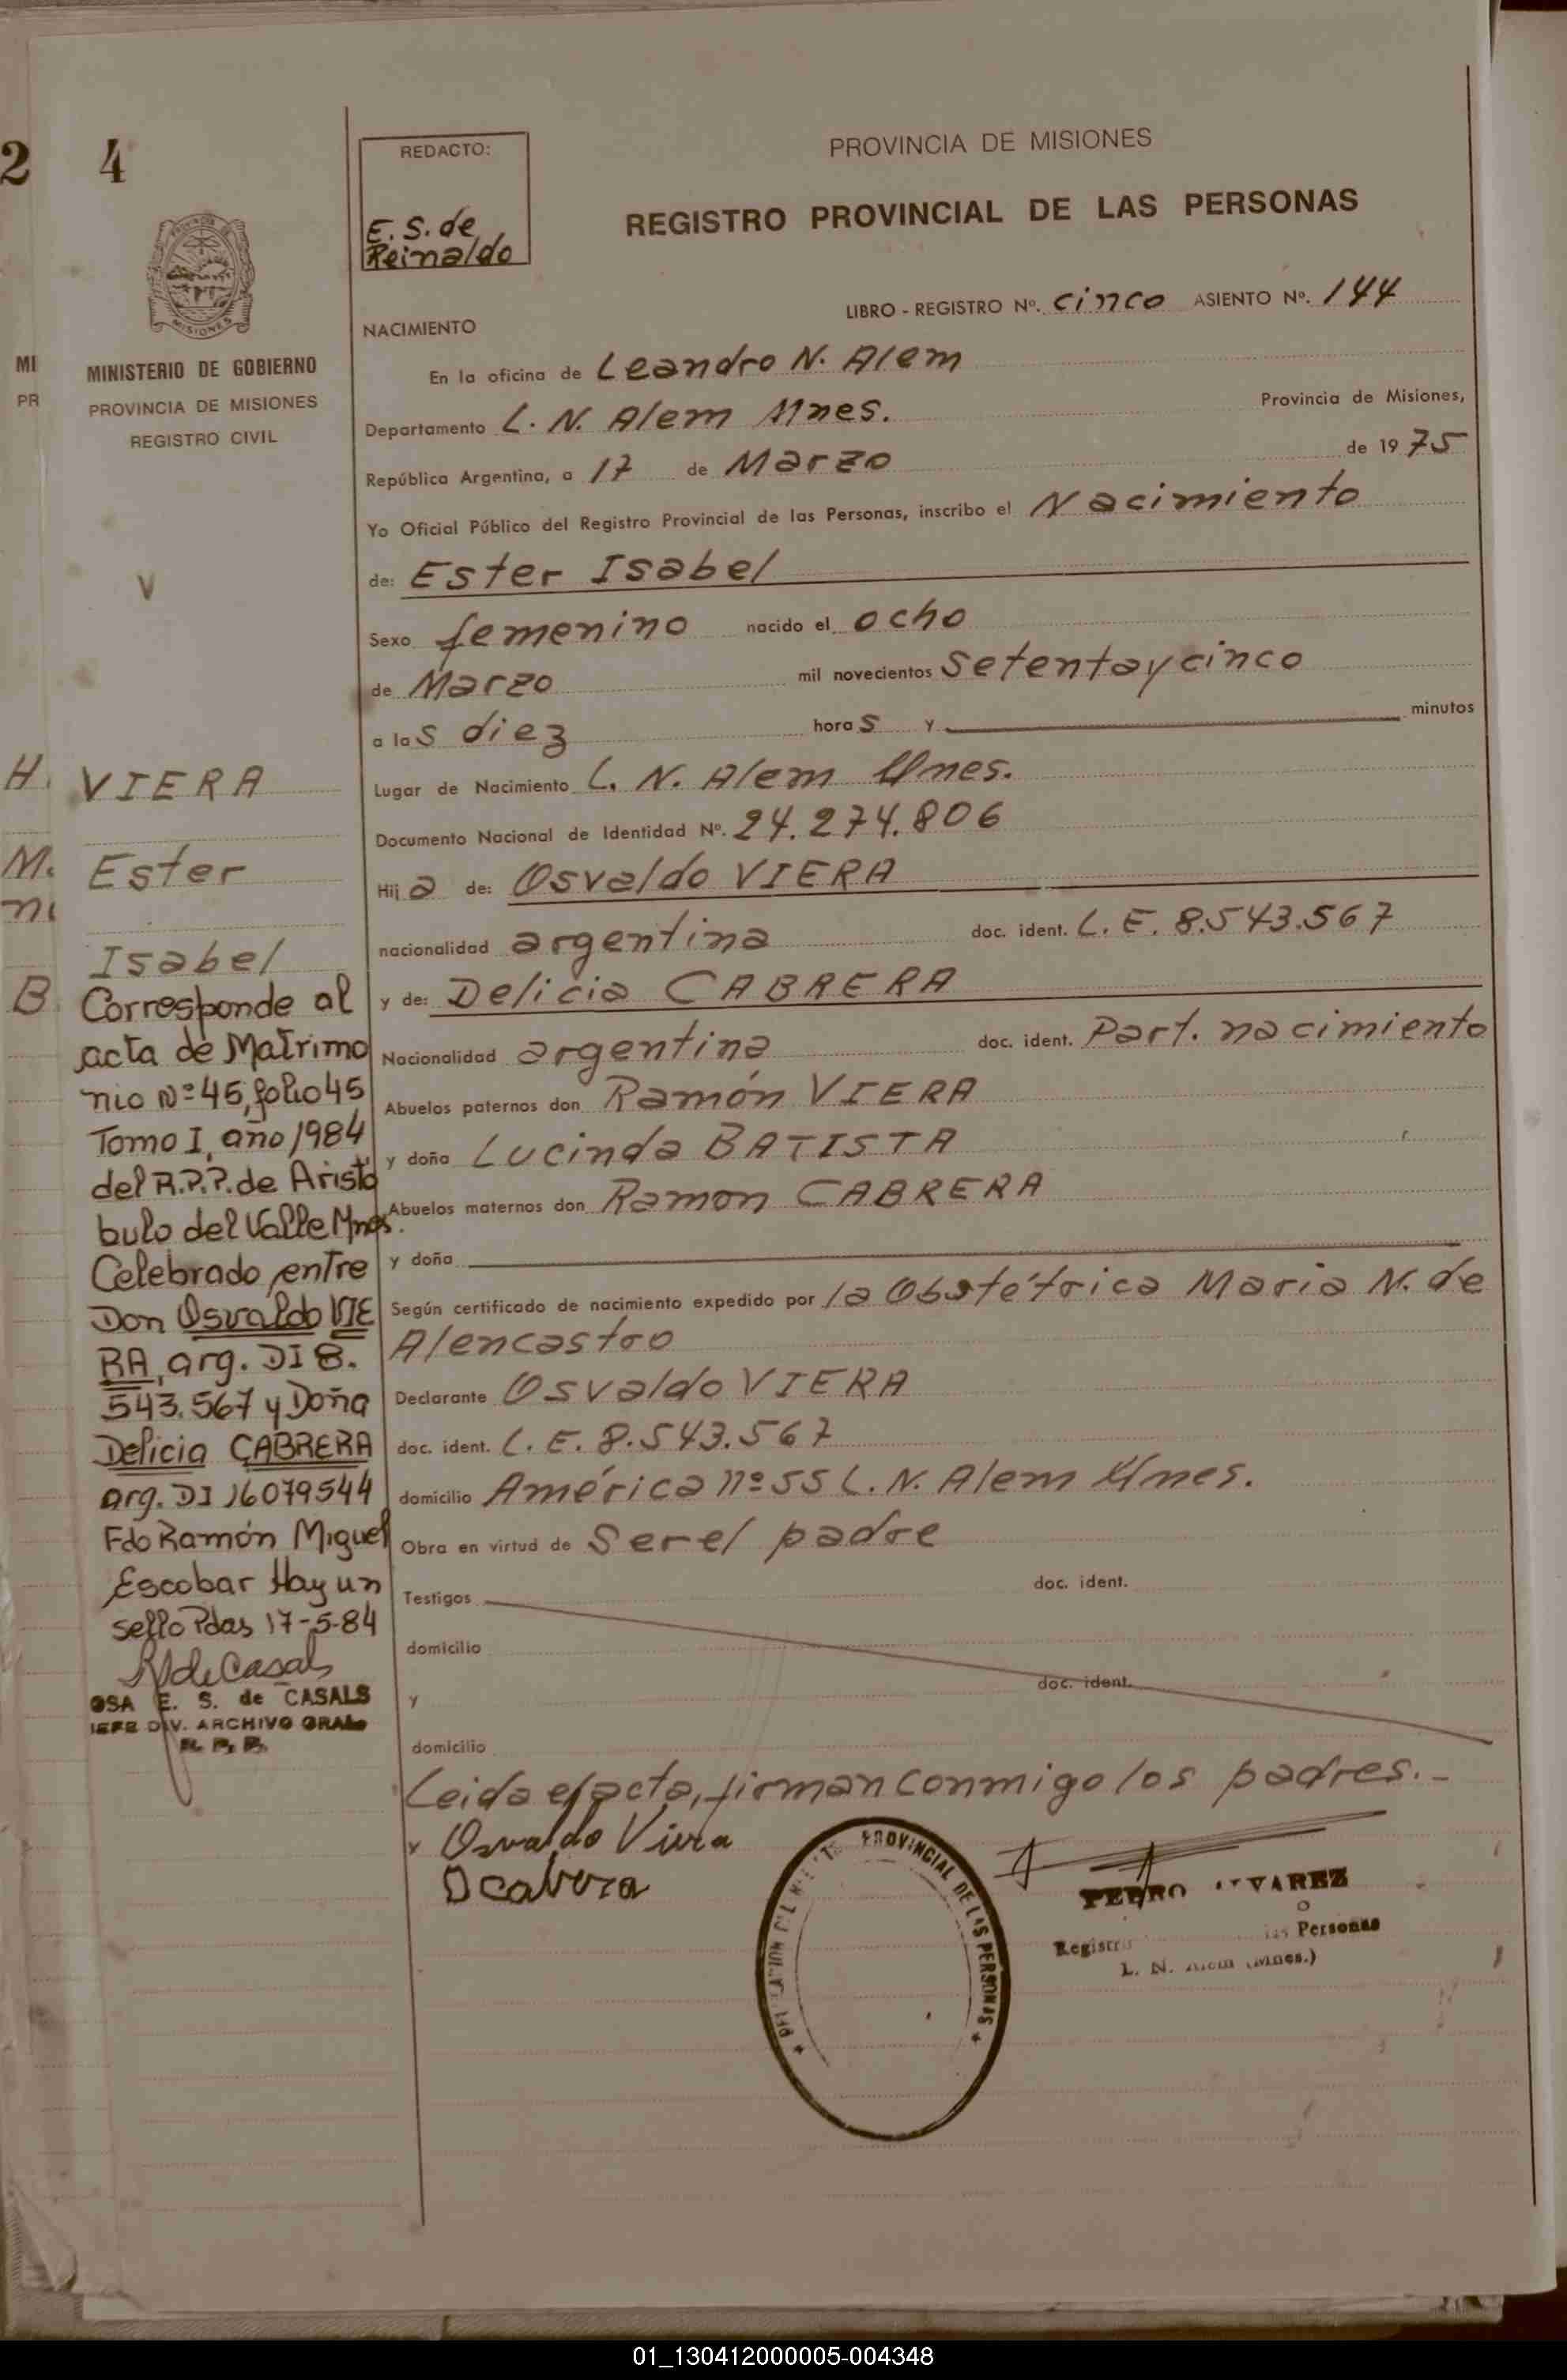 2 4
REDACTO:
E. S. de
Reinaldo
PROVINCIA DE MISIONES
REGISTRO PROVINCIAL DE LAS PERSONAS
MISIONES
MINISTERIO DE GOBIERNO
PROVINCIA DE MISIONES
REGISTRO CIVIL
MI
PR
LIBRO - REGISTRO Nº. cinco ASIENTO Nº. 144
NACIMIENTO
En la oficina de Leandro N. Alem
Departamento L. N. Alem Mnes. Provincia de Misiones,
República Argentina, a 17 de Marzo de 1975
Yo Oficial Público del Registro Provincial de las Personas, inscribo el Nacimiento
de: Ester Isabel
Sexo femenino nacido el ocho
de Marzo mil novecientos Setentaycinco
a las diez horas y minutos
Lugar de Nacimiento L. N. Alem Mnes.
Documento Nacional de Identidad Nº. 24.274.806
Hija de: Osvaldo VIERA
nacionalidad argentina doc. ident. L. E. 8.543.567
y de: Delicia CABRERA
Nacionalidad argentina doc. ident. Part. nacimiento
Abuelos paternos don Ramón VIERA
y doña Lucinda BATISTA
Abuelos maternos don Ramon CABRERA
y doña
Según certificado de nacimiento expedido por la Obstétrica Maria N. de
Alencastro
Declarante Osvaldo VIERA
doc. ident. L. E. 8.543.567
domicilio América nº 55 L. N. Alem Mnes.
Obra en virtud de Ser el padre
Testigos doc. ident.
domicilio
y doc. ident.
domicilio
Leida el acta, firman conmigo los padres.-
Osvaldo Viera
D cabrera
PROVINCIAL DE LAS PERSONAS
PEDRO ALVAREZ
Registro las Personas
L. N. Alem (Mnes.)
H.
M.
B.
VIERA
Ester
Isabel
Corresponde al
acta de Matrimo
nio Nº 45, folio 45
Tomo I, año 1984
del R.P.P. de Aristó
bulo del Valle Mnes.
Celebrado entre
Don Osvaldo VIE
RA, arg. DI 8.
543.567 y Doña
Delicia CABRERA
arg. DI 16079544
Fdo Ramón Miguel
Escobar Hay un
sello Pdas 17-5-84
RdeCasals
OSA E. S. de CASALS
JEFE DIV. ARCHIVO GRAL.
R. P. P.
01_130412000005-004348